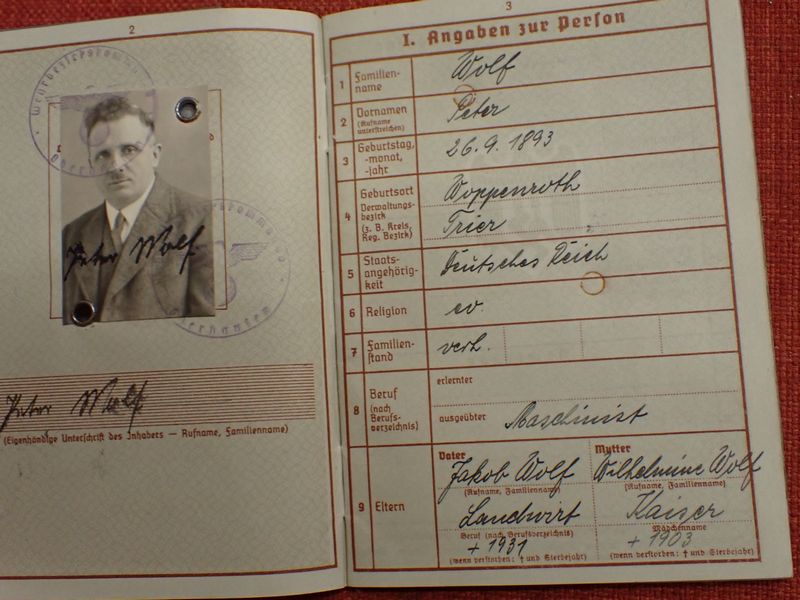 2
Wehrbezirkskommando
Oberhausen
Peter Wolf
Oberhausen
Peter Wolf
(Eigenhändige Unterschrift des Inhabers — Rufname, Familienname)
3
I. Angaben zur Person
1 Familien-
name
Wolf
2 Vornamen
(Rufname
unterstreichen)
Peter
3 Geburtstag,
-monat,
-jahr
26.9.1893
4 Geburtsort
Verwaltungs-
bezirk
(z. B. Kreis,
Reg. Bezirk)
Woppenroth
Trier
5 Staats-
angehörig-
keit
Deutsches Reich
6 Religion
ev.
7 Familien-
stand
verh.
8 Beruf
(nach
Berufs-
verzeichnis)
erlernter
ausgeübter
Maschinist
9 Eltern
Vater
Jakob Wolf
(Rufname, Familienname)
Landwirt
Beruf (nach Berufsverzeichnis)
+ 1931
(wenn verstorben: † und Sterbejahr)
Mutter
Wilhelmine Wolf
(Rufname, Familienname)
Kaiser
Mädchenname
+ 1903
(wenn verstorben: † und Sterbejahr)